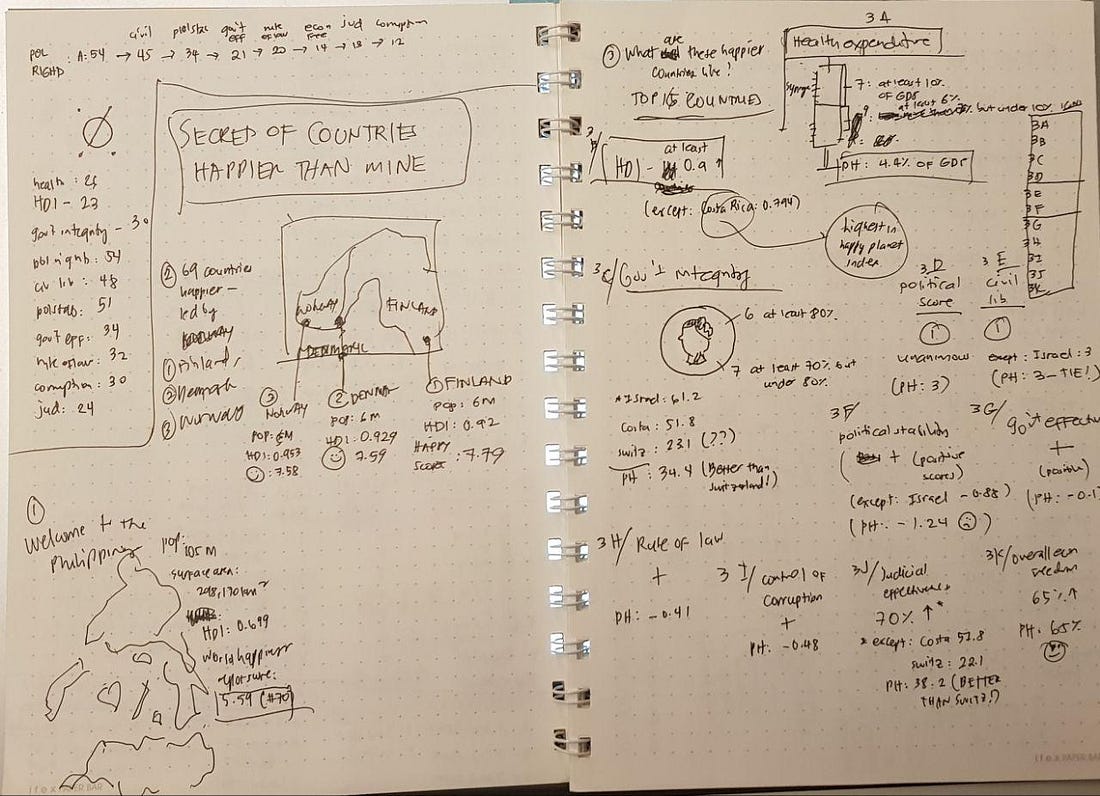 civil polstac gov't eff rule of law econ free jud corruption
POL RIGHTS : A: 54 → 45 → 34 → 21 → 20 → 14 → 13 → 12
SECRET OF COUNTRIES
HAPPIER THAN MINE
health : 25
HDI - 23
govt integrity - 30
pol rights : 54
civ lib : 48
polstab : 51
govt eff : 34
rule of law : 32
corruption : 30
jud : 24
② 69 countries
happier -
led by
① Finland,
② Denmark
③ Norway
NORWAY
FINLAND
DENMARK
③
NORWAY
POP: 5M
HDI: 0.953
: 7.58
② DENMARK
POP: 6M
HDI: 0.929
7.59
① FINLAND
Pop: 6M
HDI: 0.92
Happy
score : 7.79
①
Welcome to the
Philippines
pop:
105 M
surface area:
298,170 km²
HDI: 0.699
world happiness
report score:
5.59 (#70)
ifex PAPER BAR
3 A
Health expenditure
③ What are these happier
countries like?
TOP 15 COUNTRIES
syringe
7: at least 10%
of GDP
at least 6%
but under 10%
PH: 4.4% of GDP
3A
3B
3C
3D
3E
3F
3G
3H
3I
3J
3K
3B/
HDI - at least 0.9
(except: Costa Rica: 0.794)
highest in
happy planet
index
3C/ Gov't integrity
6 at least 80%
7 at least 70% but
under 80%
* Israel: 61.2
Costa : 51.8
switz : 23.1 (??)
PH : 34.4 (Better than
Switzerland!)
3 D
political
score
①
unanimous
(PH: 3)
3 E
civil
lib
①
except: Israel: 3
(PH: 3 - TIE!)
3F/
political stability
+ (positive
scores)
(except: Israel -0.88)
(PH: -1.24 )
3G/
gov't effectiv
+
(positive)
(PH: -0.1
3H/ Rule of law
+
PH: -0.41
3 I/ control of
corruption
+
PH: -0.48
3J/ Judicial
effectiveness
70% ↑*
* except: Costa 53.8
switz : 22.1
PH: 38.2 (BETTER
THAN SWITZ!)
3K/ overall econ
freedom
65% ↑
PH: 65%
ifex PAPER BAR